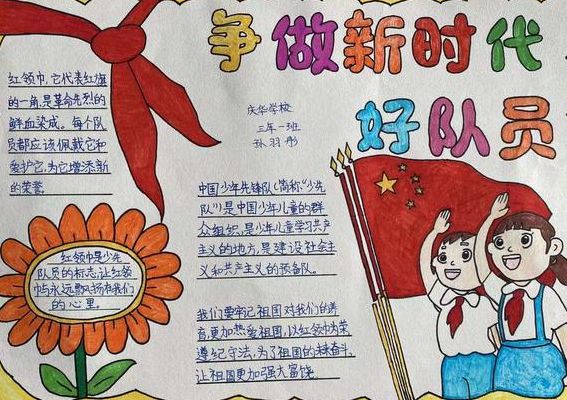 争做新时代
好队员
红领巾,它代表红旗
的一角,是革命先烈的
鲜血染成。每个队
员都应该佩戴它和
爱护它,为它增添新
的荣誉
庆华学校
三年一班
孙羽彤
中国少年先锋队(简称“少先
队”)是中国少年儿童的群
众组织,是少年儿童学习共产
主义的地方,是建设社会主
义和共产主义的预备队。
红领巾是少先
队员的标志,让红领
巾永远飘扬在我们
的心里
我们要牢记祖国对我们的养
育,更加热爱祖国,以红领巾为荣
遵纪守法,为了祖国的未来奋斗,
让祖国更加强大富饶